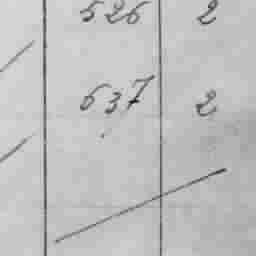 526 2
637 2